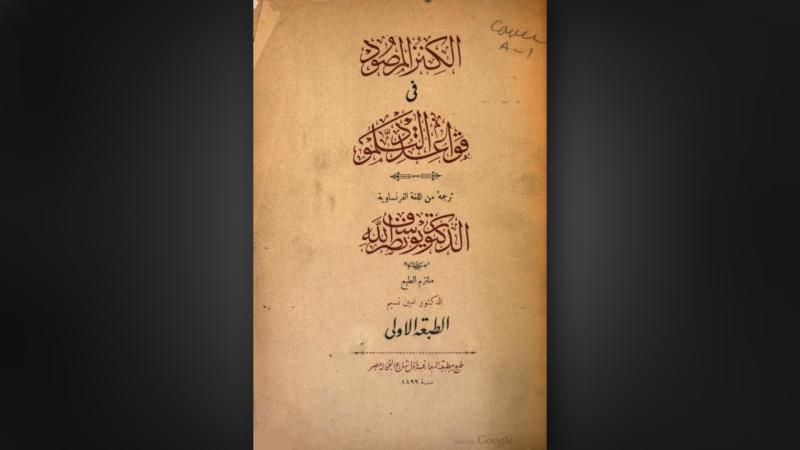 Cover
A-1
الكنز المرصود
فى
قواعد التلمود
ترجمهُ من اللغة الفرنساوية
الدكتور يوسف نصر الله
ملتزم الطبع
الدكتور امين نسيم
الطبعة الاولى
طبع بمطبعة المعارف باول شارع الفجاله بمصر
سنة ١٨٩٩
Google